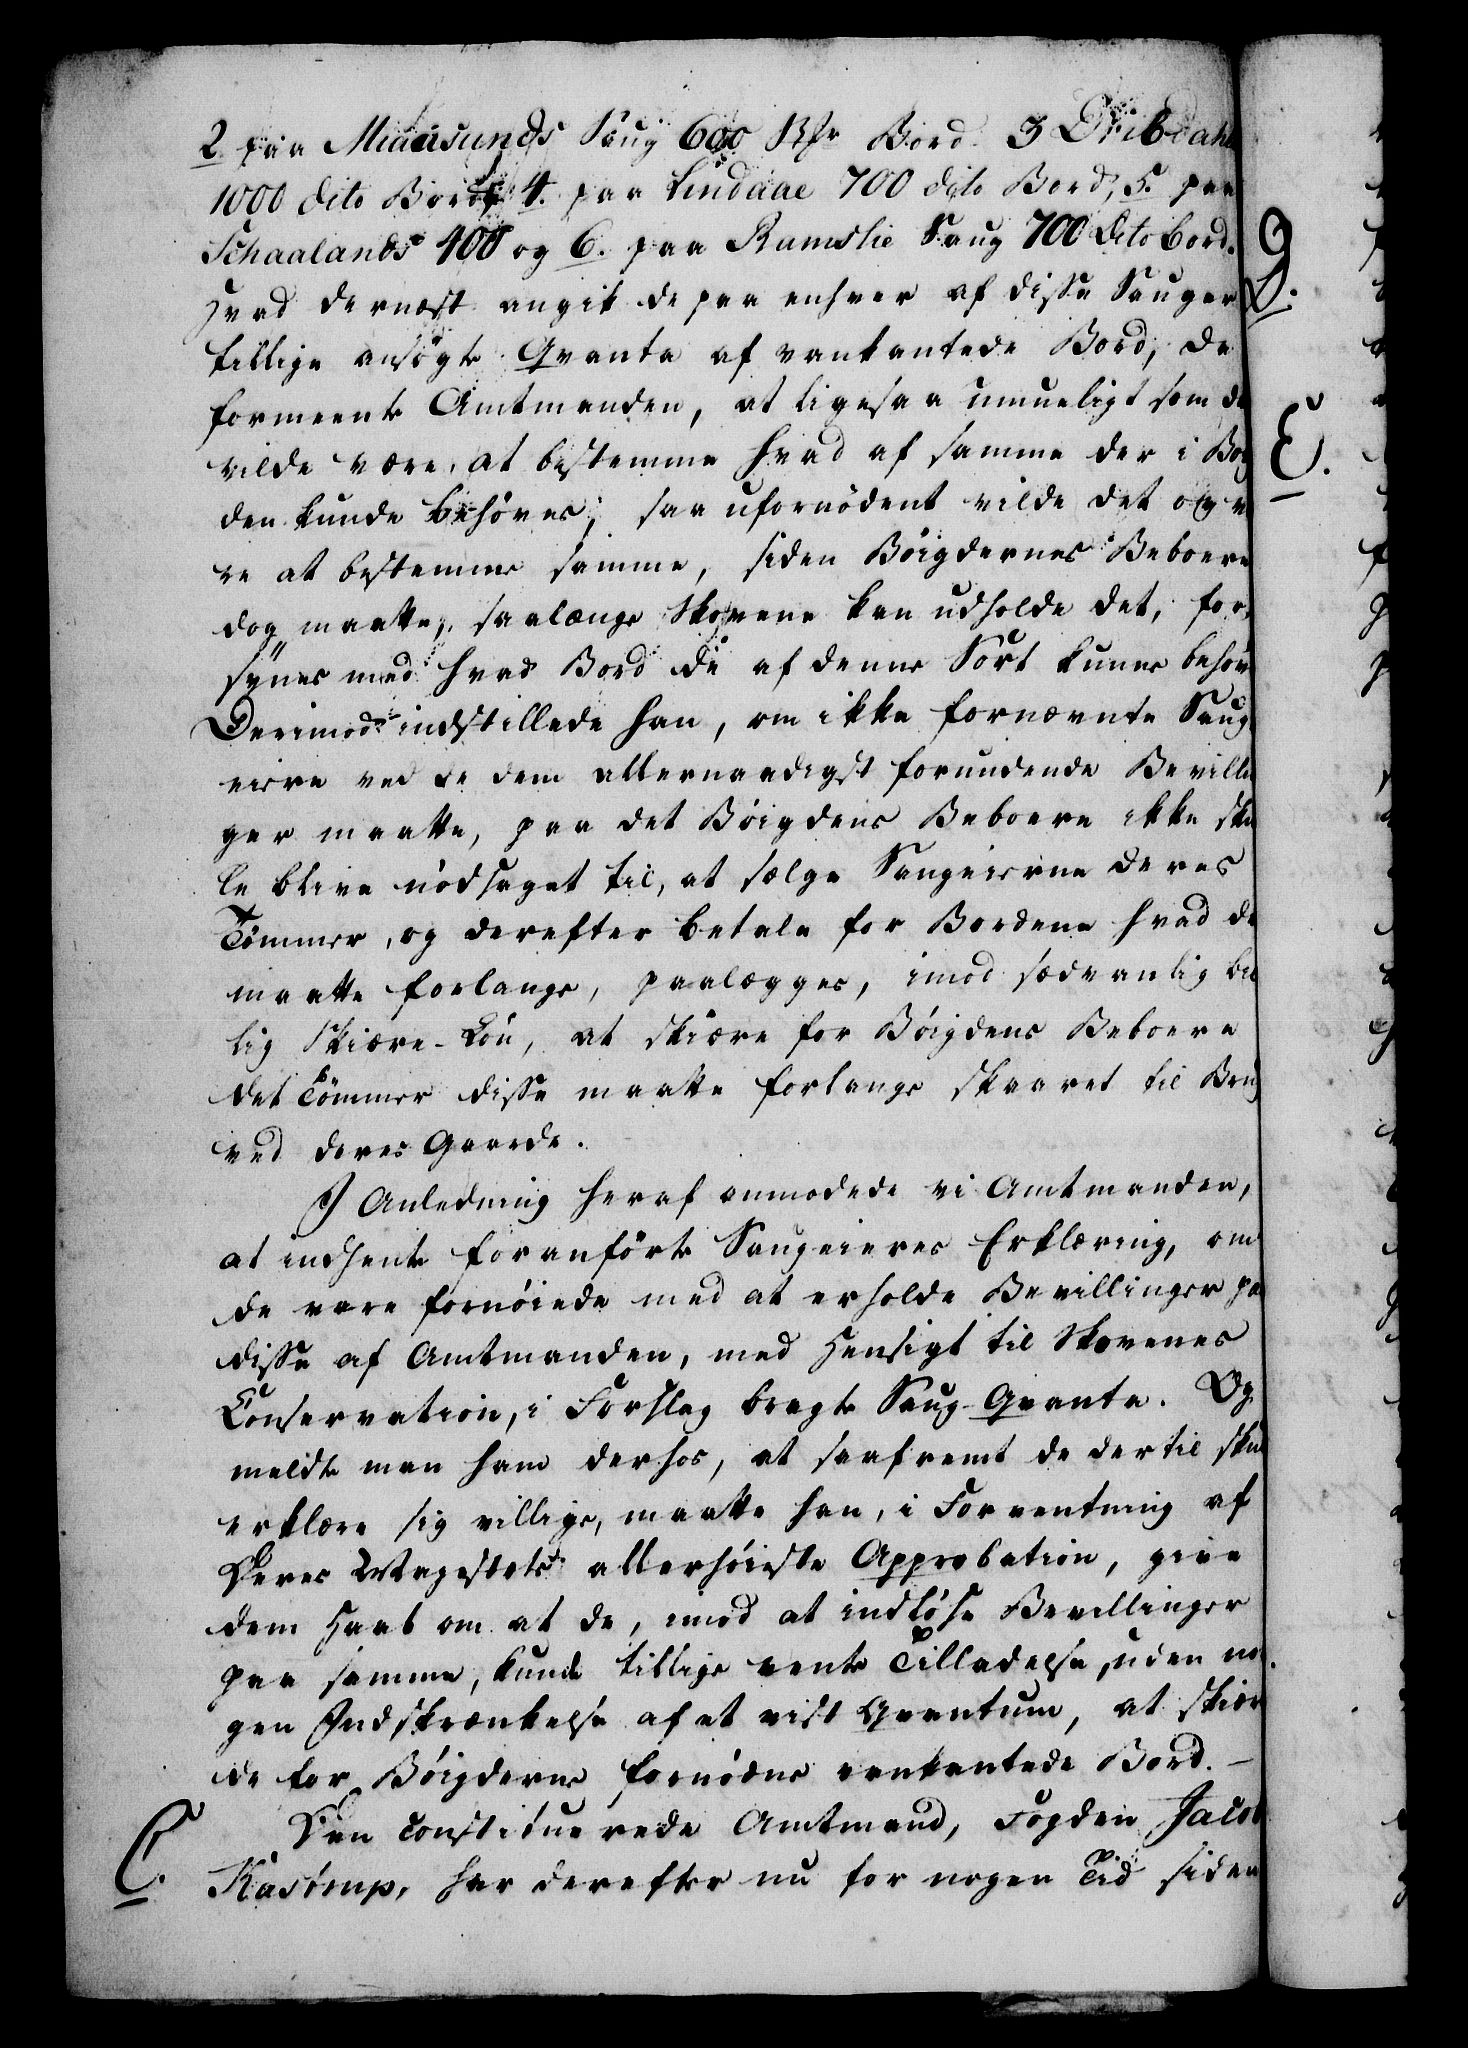 2. paa Miaasunds Saug 600 Bord 3 Dribdahls
1000 dito Bord, 4. paa Lindaae 700 dito Bord, 5. paa
Schaalands 400 og 6. paa Ramslie Saug 700 dito bord.
Hvad dernæst angik de paa enhver af disse Sauger
tillige ansøgte Qvanta af vankantede Bord, da
formeente Amtmanden, at ligesaa umueligt som det
vilde være, at bestemme hvad af samme der i Bøig
den kunde behøves, saa ufornødent vilde det og væ
re at bestemme samme, siden Bøigdernes Beboere
dog maatte, saalænge Skovene kan udholde det, for-
synes med hvad Bord de af denne Sort kunne behøve
Derimod indstillede han, om ikke fornævnte Saug
eiere ved de dem allernaadigst forundende Bevillin
ger maatte, paa det Bøigdens Beboere ikke skul
le blive nødsaget til, at sælge Saugeierne deres
Tømmer, og derefter betale for Bordene hvad de
maatte forlange, paalægges, imod sædvanlig bil
lig Skiære-Løn, at skiære for Bøigdens Beboere
det Tømmer disse maatte forlange skaaret til Brug
ved deres Gaarde.
I Anledning heraf anmodede vi Amtmanden,
at indhente foranførte Saugeieres Erklæring, om
de vare fornøiede med at erholde Bevillinger paa
disse af Amtmanden, med Hensigt til Skovenes
Conservation, i Forslag bragte Saug-Qvanta. Og
meldte man ham derhos, at saafremt de dertil skul
erklære sig villige, maatte han, i Forventning af
Deres Majestets allerhøieste Approbation, give
dem Haab om at de, imod at indløse Bevillinger
paa samme, kunde tillige vente Tilladelse, uden no-
gen Indskrænkelse af et vist Qvantum, at skiære
de for Bøigderne fornødne vankantede Bord. –
C. Den constituerede Amtmand, Fogden Jacob
Kastrup, har derefter nu for nogen Tid siden
D.
E.